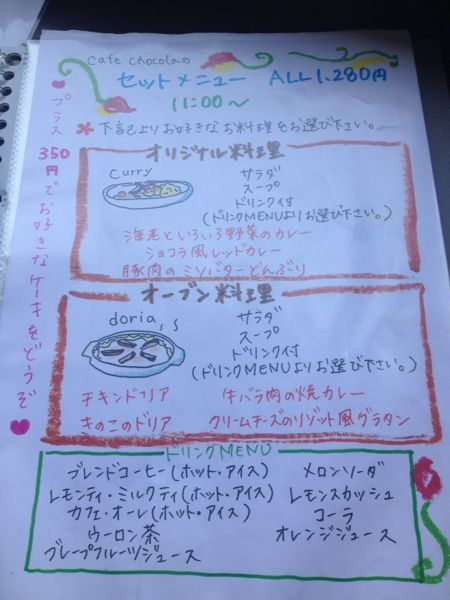 Cafe chocolaの
セットメニュー ALL 1,280円
11:00～
＊下記よりお好きなお料理をお選び下さい。
♥プラス350円でお好きなケーキをどうぞ♥
オリジナル料理
curry
サラダ
スープ
ドリンク付
(ドリンクMENUよりお選び下さい。)
海老といろいろ野菜のカレー
ショコラ風レッドカレー
豚肉のミソバターどんぶり
オーブン料理
doria,s
サラダ
スープ
ドリンク付
(ドリンクMENUよりお選び下さい。)
チキンドリア 牛バラ肉の焼カレー
きのこのドリア クリームチーズのリゾット風グラタン
ドリンクMENU
ブレンドコーヒー(ホット・アイス) メロンソーダ
レモンティ・ミルクティ(ホット・アイス) レモンスカッシュ
カフェ・オーレ(ホット・アイス) コーラ
ウーロン茶 オレンジジュース
ブレープフルーツジュース